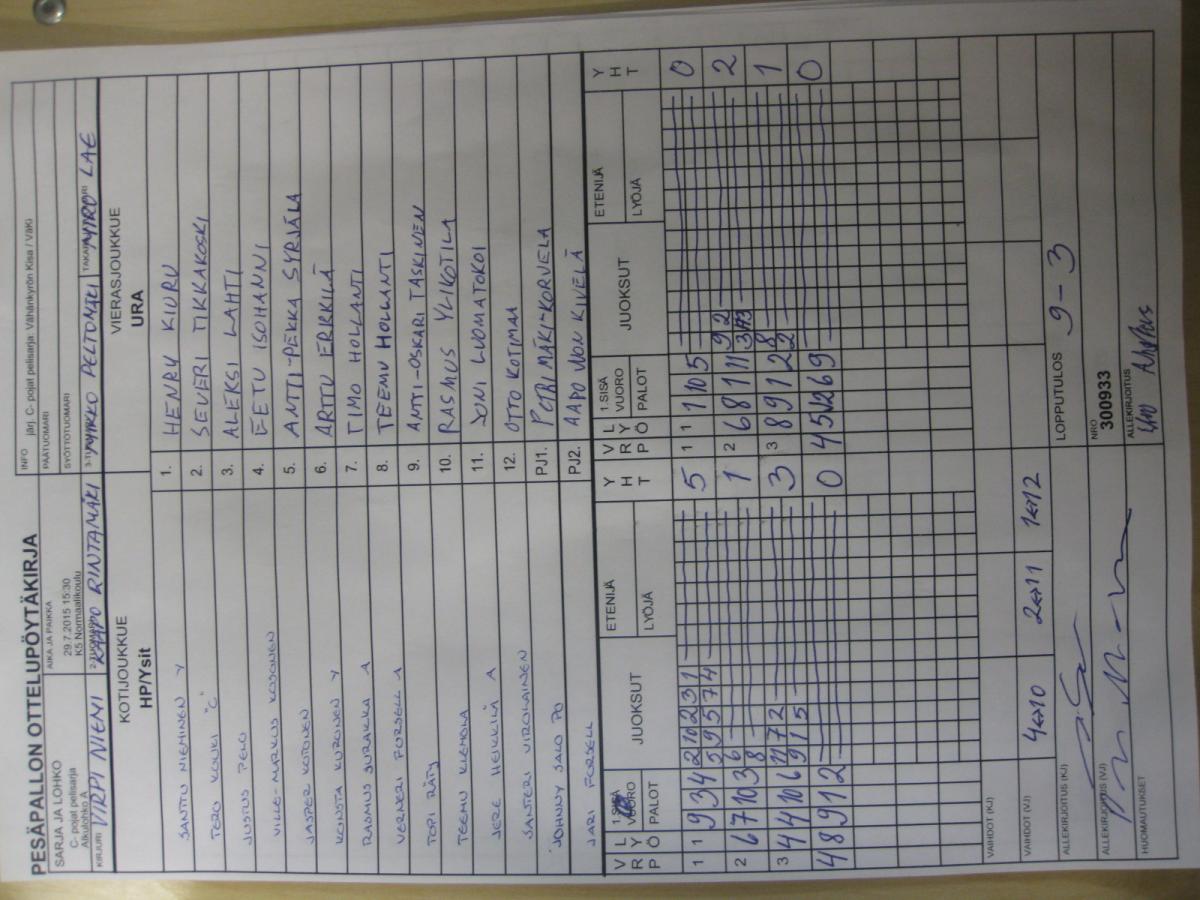 PESÄPALLON OTTELUPÖYTÄKIRJA
SARJA JA LOHKO
C- pojat pelisarja
Alkulohko A
AIKA JA PAIKKA
29.7.2015 15:30
K5 Normaalikoulu
INFO järj. C- pojat pelisarja: Vähänkyrön Kisa / VäKi
PÄÄTUOMARI
SYÖTTÖTUOMARI
KIRJURI VIRPI NIEMI
KAAPO RINTAMÄKI
PELTOMÄKI
LAE
KOTIJOUKKUE
HP/Ysit
VIERASJOUKKUE
URA
SANTTU NIEMINEN Y
1. HENRY KIURU
TERO KOUKI "C"
2. SEVERI TIKKAKOSKI
JUSTUS PELO
3. ALEKSI LAHTI
VILLE-MARKUS KOSONEN
4. EETU ISOHANNI
JASPER KOTONEN
5. ANTTI-PEKKA SYRJÄLÄ
KONSTA KURONEN Y
6. ARTTU ERKKILÄ
RASMUS SURAKKA A
7. TIMO HOLLANTI
VERNERI FORSELL A
8. TEEMU HOLLANTI
TOPI RÄTY
9. ANTTI-OSKARI TASKINEN
TEEMU KLEMOLA
10. RASMUS YLIKOTILA
JERE HEIKKILÄ A
11. JONI LUOMATOKOI
SANTERI VIROLAINEN
12. OTTO KOTIMAA
JOHNNY SALO PO
PJ1. PETRI MÄKI-KORVELA
JARI FORSELL
PJ2. KIVELÄ
V R P
L Y Ö
VUORO
PALOT
JUOKSUT
ETENIJÄ
LYÖJÄ
Y H T
V R P
L Y Ö
1.SISÄ
VUORO
PALOT
JUOKSUT
ETENIJÄ
LYÖJÄ
Y H T
1 1 9 3 4 2 10 2 3 1
5 9 5 7 4
5
1 1 1 10 5
0
2 6 7 10 3 6
8
1
2 6 8 11 11 9 2
2
3 4 4 10 6 11 7 2
9 1 5
3
3 8 9 1 2 8
2
1
4 8 9 1 2
0
0
VAIHDOT (KJ)
VAIHDOT (VJ) 4↔10 2↔11 1↔12
ALLEKIRJOITUS (KJ)
LOPPUTULOS 9-3
ALLEKIRJOITUS (VJ)
NRO
300933
HUOMAUTUKSET
ALLEKIRJOITUS